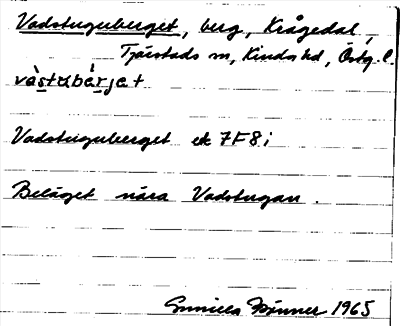 Vadstuguberget, berg, Krågedal,
Tjärstads sn, Kinda hd, Östg. l.
vàstubæ̀rjet
Vadstuguberget ek 7F8i
Beläget nära Vadstugan.
Gunilla 1965